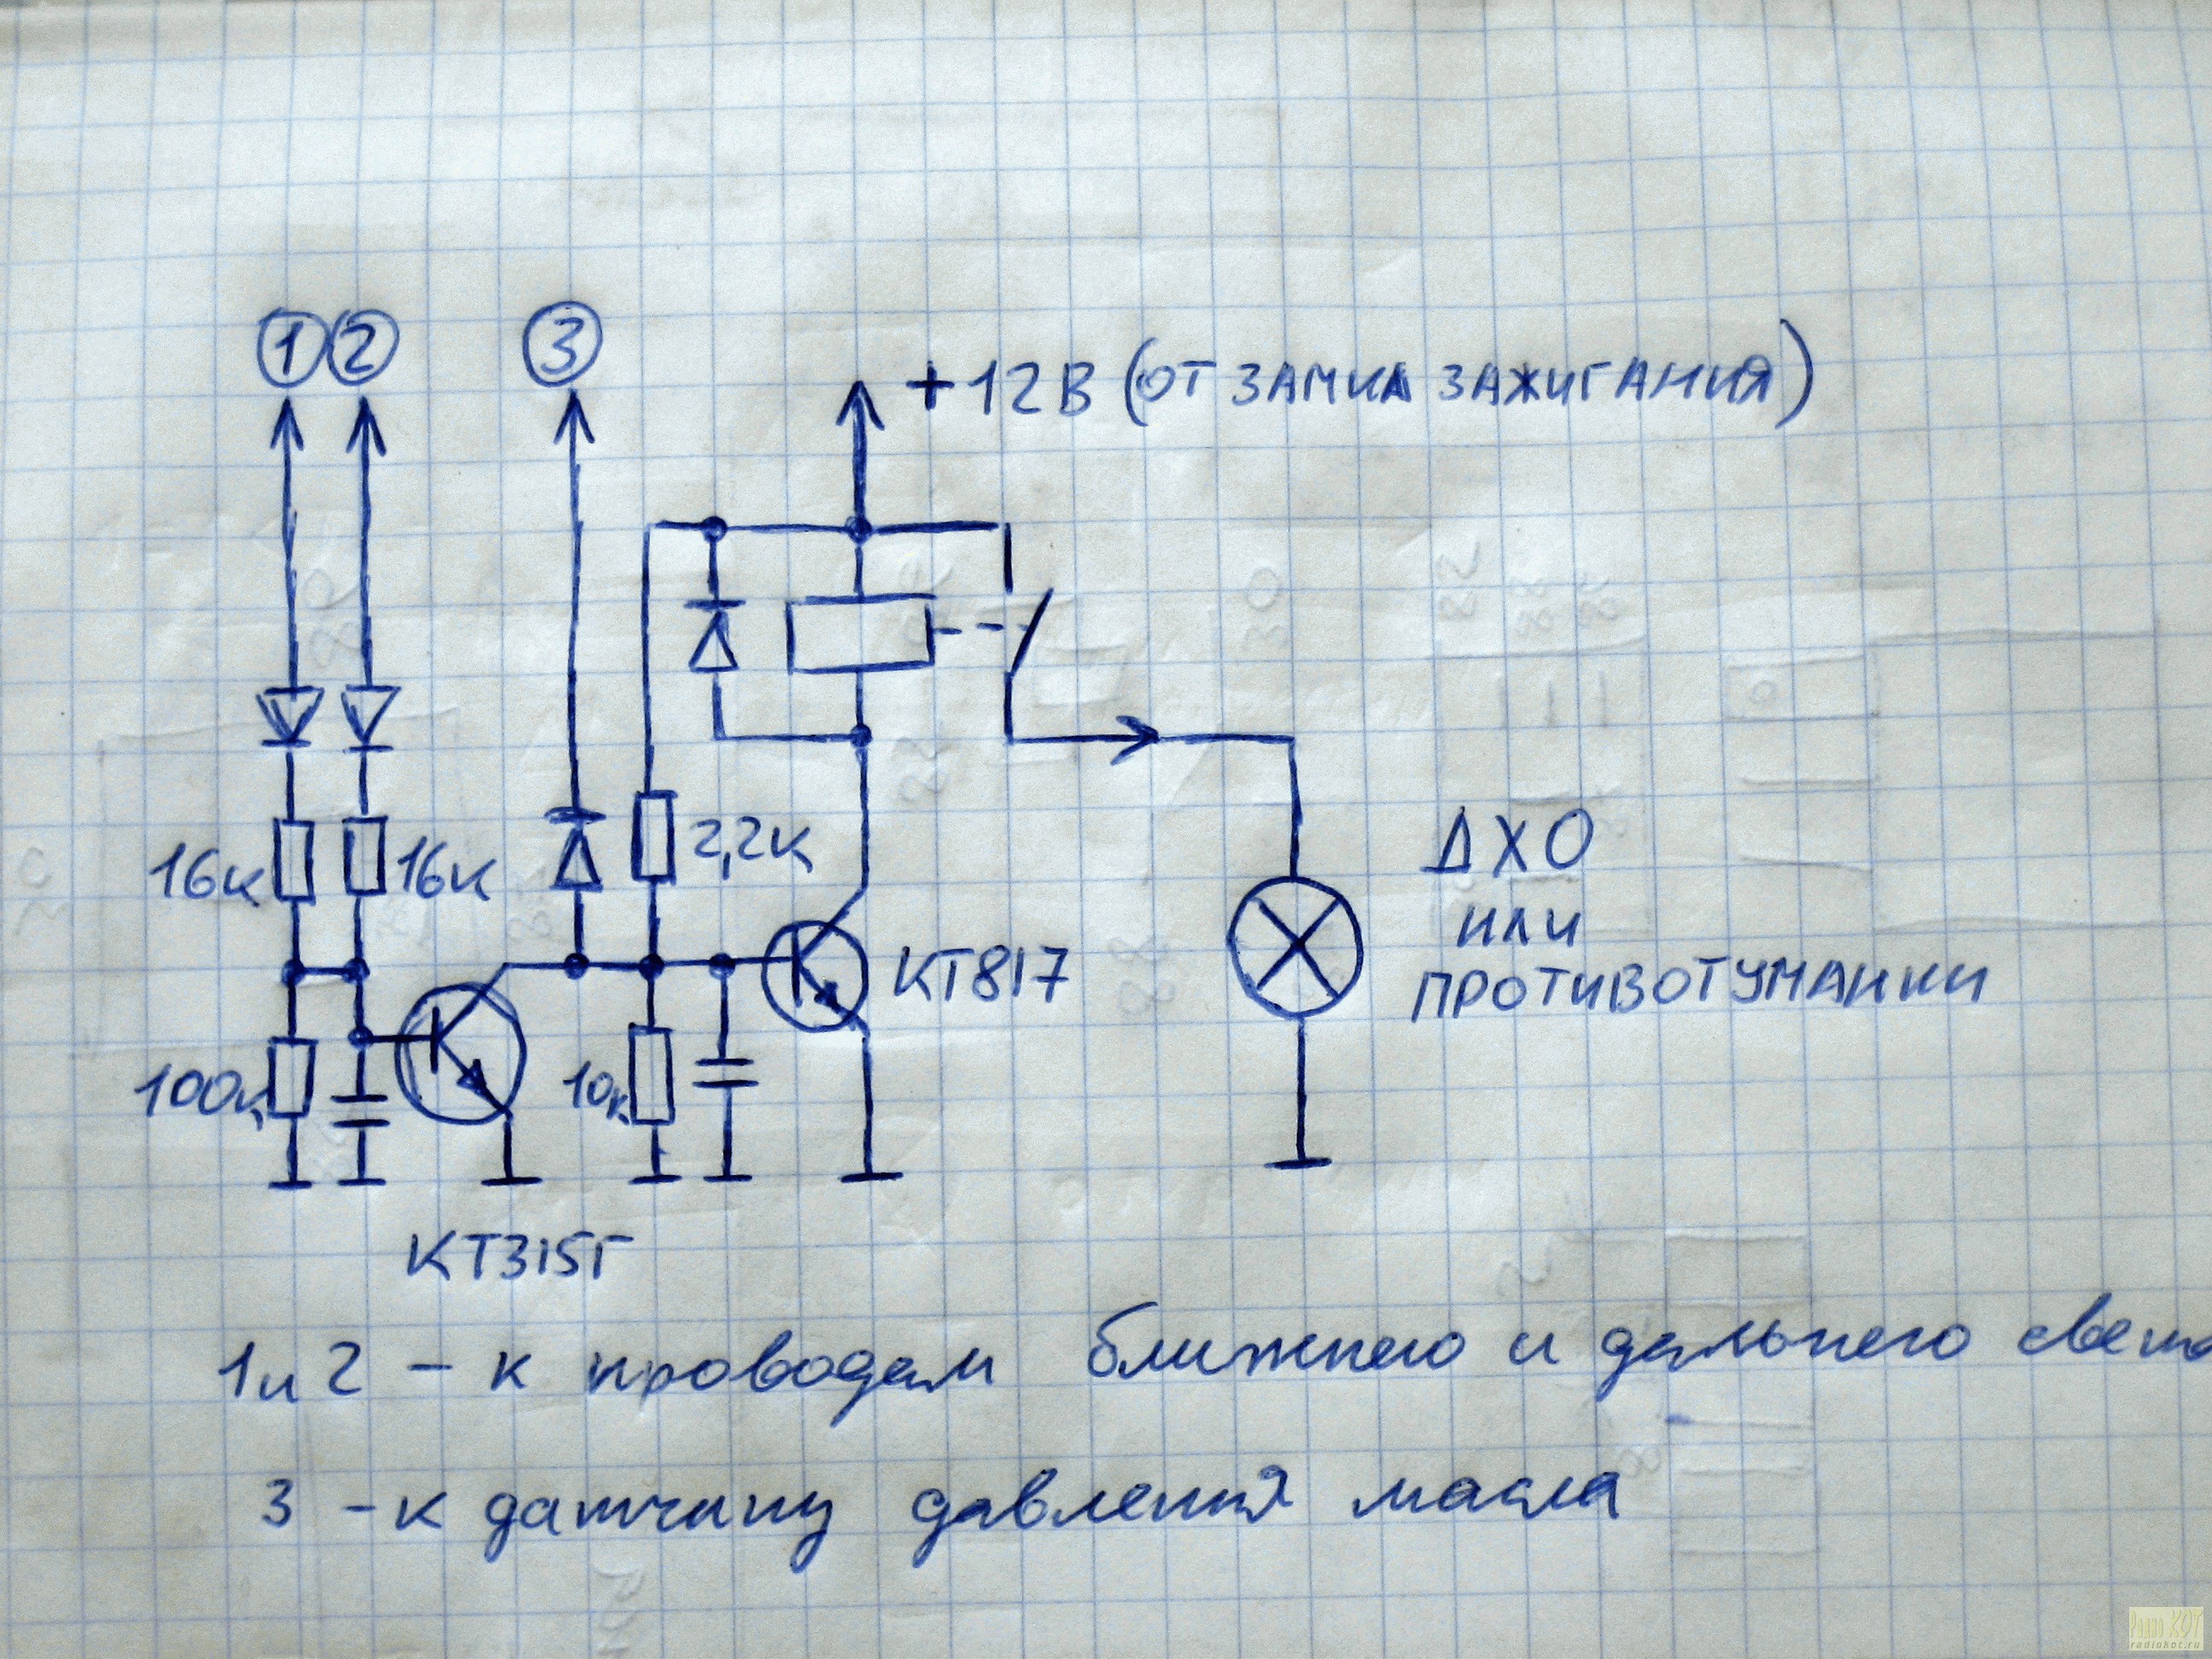 1 2 3
+12В (ОТ ЗАМКА ЗАЖИГАНИЯ)
16к 16к 2,2к
ДХО
ИЛИ
ПРОТИВОТУМАНКИ
КТ817
100к 10к
КТ315Г
1 и 2 – к проводам ближнего и дальнего света
3 – к датчику давления масла
Радио КОТ
radiokot.ru